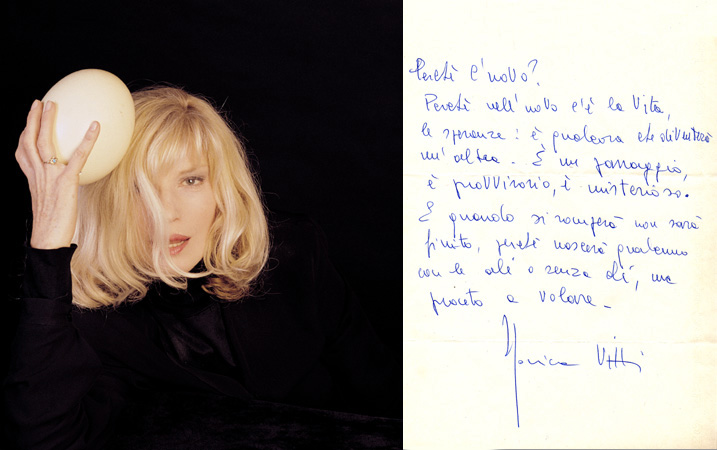 Perché l'uovo?
Perché nell'uovo c'è la vita,
la speranza: è qualcosa che diventerà
un'altra. È un passaggio,
è provvisorio, è misterioso.
E quando si romperà non sarà
finito, perché nascerà qualcuno
con le ali o senza ali, ma
pronto a volare_
Monica Vitti